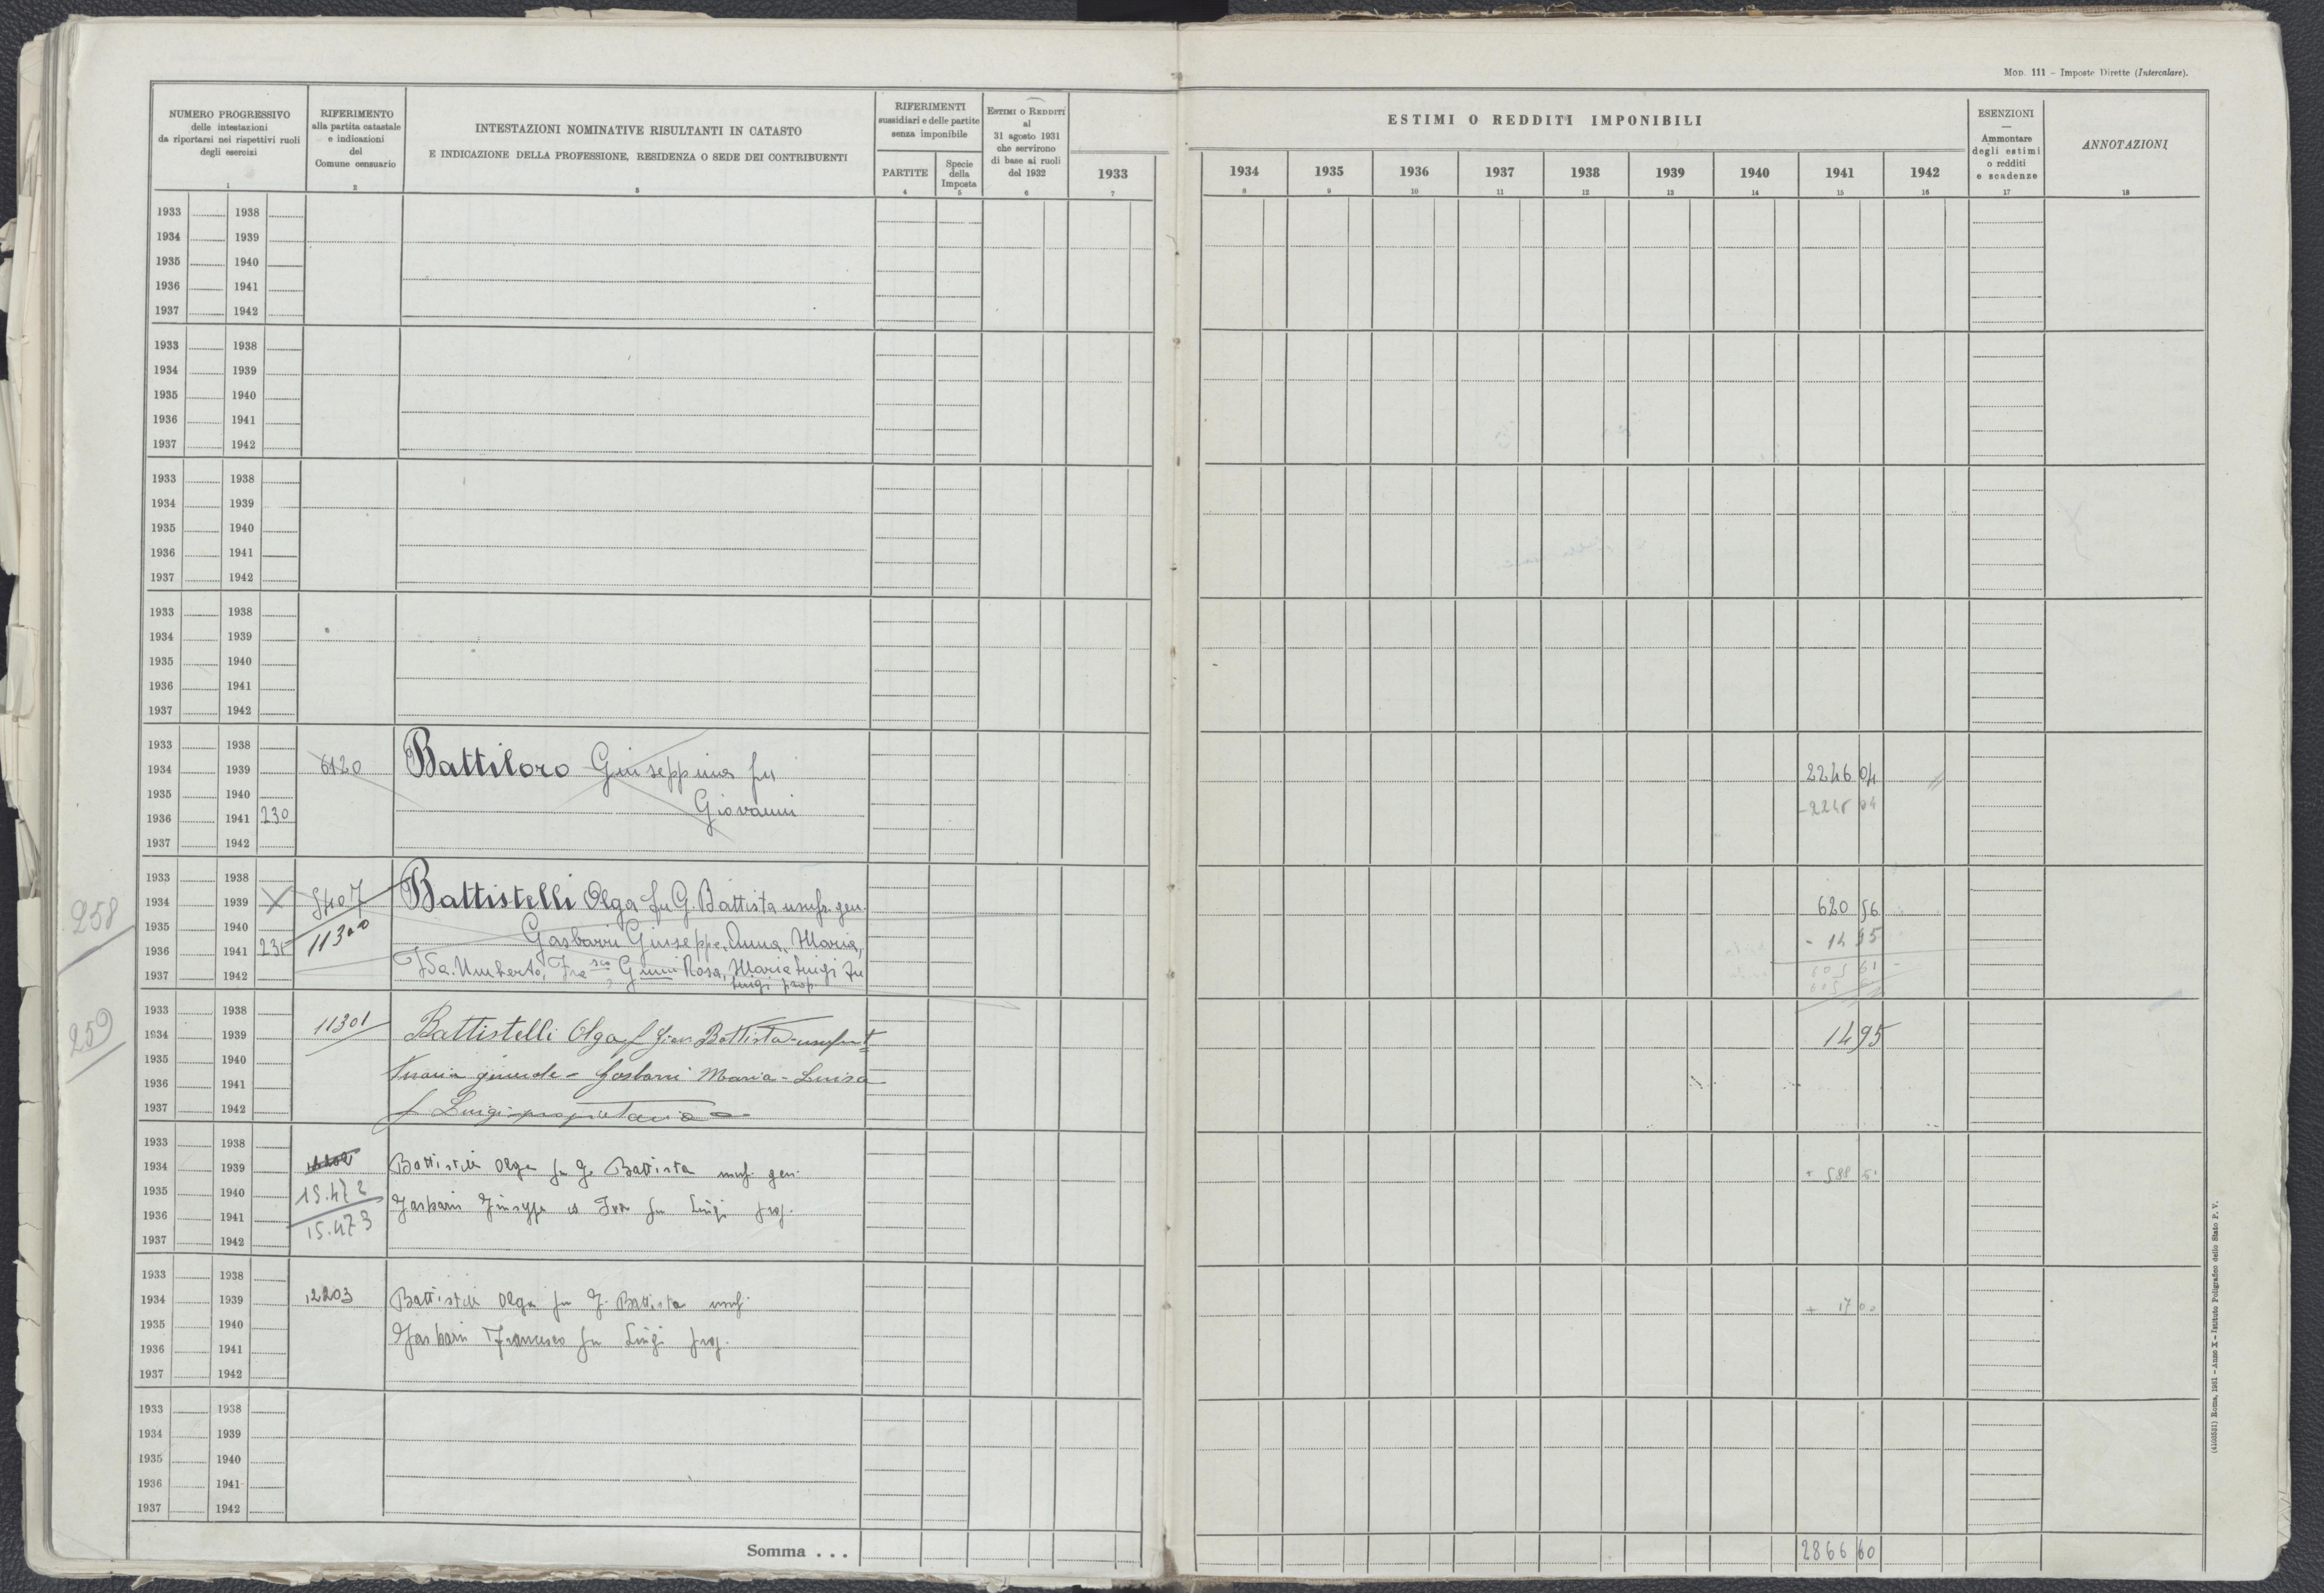 MOD. 111 – Imposte Dirette (Intercalare).
NUMERO PROGRESSIVO
delle intestazioni
da riportarsi nei rispettivi ruoli
degli esercizi
1
RIFERIMENTO
alla partita catastale
e indicazioni
del
Comune censuario
2
INTESTAZIONI NOMINATIVE RISULTANTI IN CATASTO
E INDICAZIONE DELLA PROFESSIONE, RESIDENZA O SEDE DEI CONTRIBUENTI
3
RIFERIMENTI
sussidiari e delle partite
senza imponibile
PARTITE
4
Specie
della
Imposta
5
ESTIMI O REDDITI
al
31 agosto 1931
che servirono
di base ai ruoli
del 1932
6
1933
7
ESTIMI O REDDITI IMPONIBILI
1934 1935 1936 1937 1938 1939 1940 1941 1942
8 9 10 11 12 13 14 15 16
ESENZIONI
—
Ammontare
degli estimi
o redditi
e scadenze
17
ANNOTAZIONI
18
1933 1938
1934 1939
1935 1940
1936 1941
1937 1942
1933 1938
1934 1939
1935 1940
1936 1941
1937 1942
1933 1938
1934 1939
1935 1940
1936 1941
1937 1942
1933 1938
1934 1939
1935 1940
1936 1941
1937 1942
1933 1938
1934 1939 6120 Battiloro Giuseppina fu 2246 04
1935 1940 Giovanni
1936 1941 230
1937 1942
258
1933 1938
1934 1939 5407 Battistelli Olga fu G. Battista usufr. gen. 620 56
1935 1940 11300 Gasbarri Giuseppe, Anna, Maria, - 14 95
1936 1941 231 Umberto, Rosa, Maria Luigi fu 605 61
1937 1942 Luigi prop.
259
1933 1938
1934 1939 11301 Battistelli Olga f Gian Battista-usufrut 14 95
1935 1940
1936 1941 tuaria generale = Gasbarri Maria-Luisa
1937 1942 f Luigi-proprietaria
1933 1938
1934 1939 Battistelli Olga fu G. Battista usuf. gen.
1935 1940 15.472 Gasbarri Giuseppe ed Ida fu Luigi prop.
1936 1941 15.473
1937 1942
1933 1938
1934 1939 12203 Battistelli Olga fu G. Battista usuf. + 17 00
1935 1940 Gasbarri Francesco fu Luigi prop.
1936 1941
1937 1942
1933 1938
1934 1939
1935 1940
1936 1941
1937 1942
Somma . . . 2866 60
(4100531) Roma, 1931 – Anno X – Istituto Poligrafico dello Stato P. V.